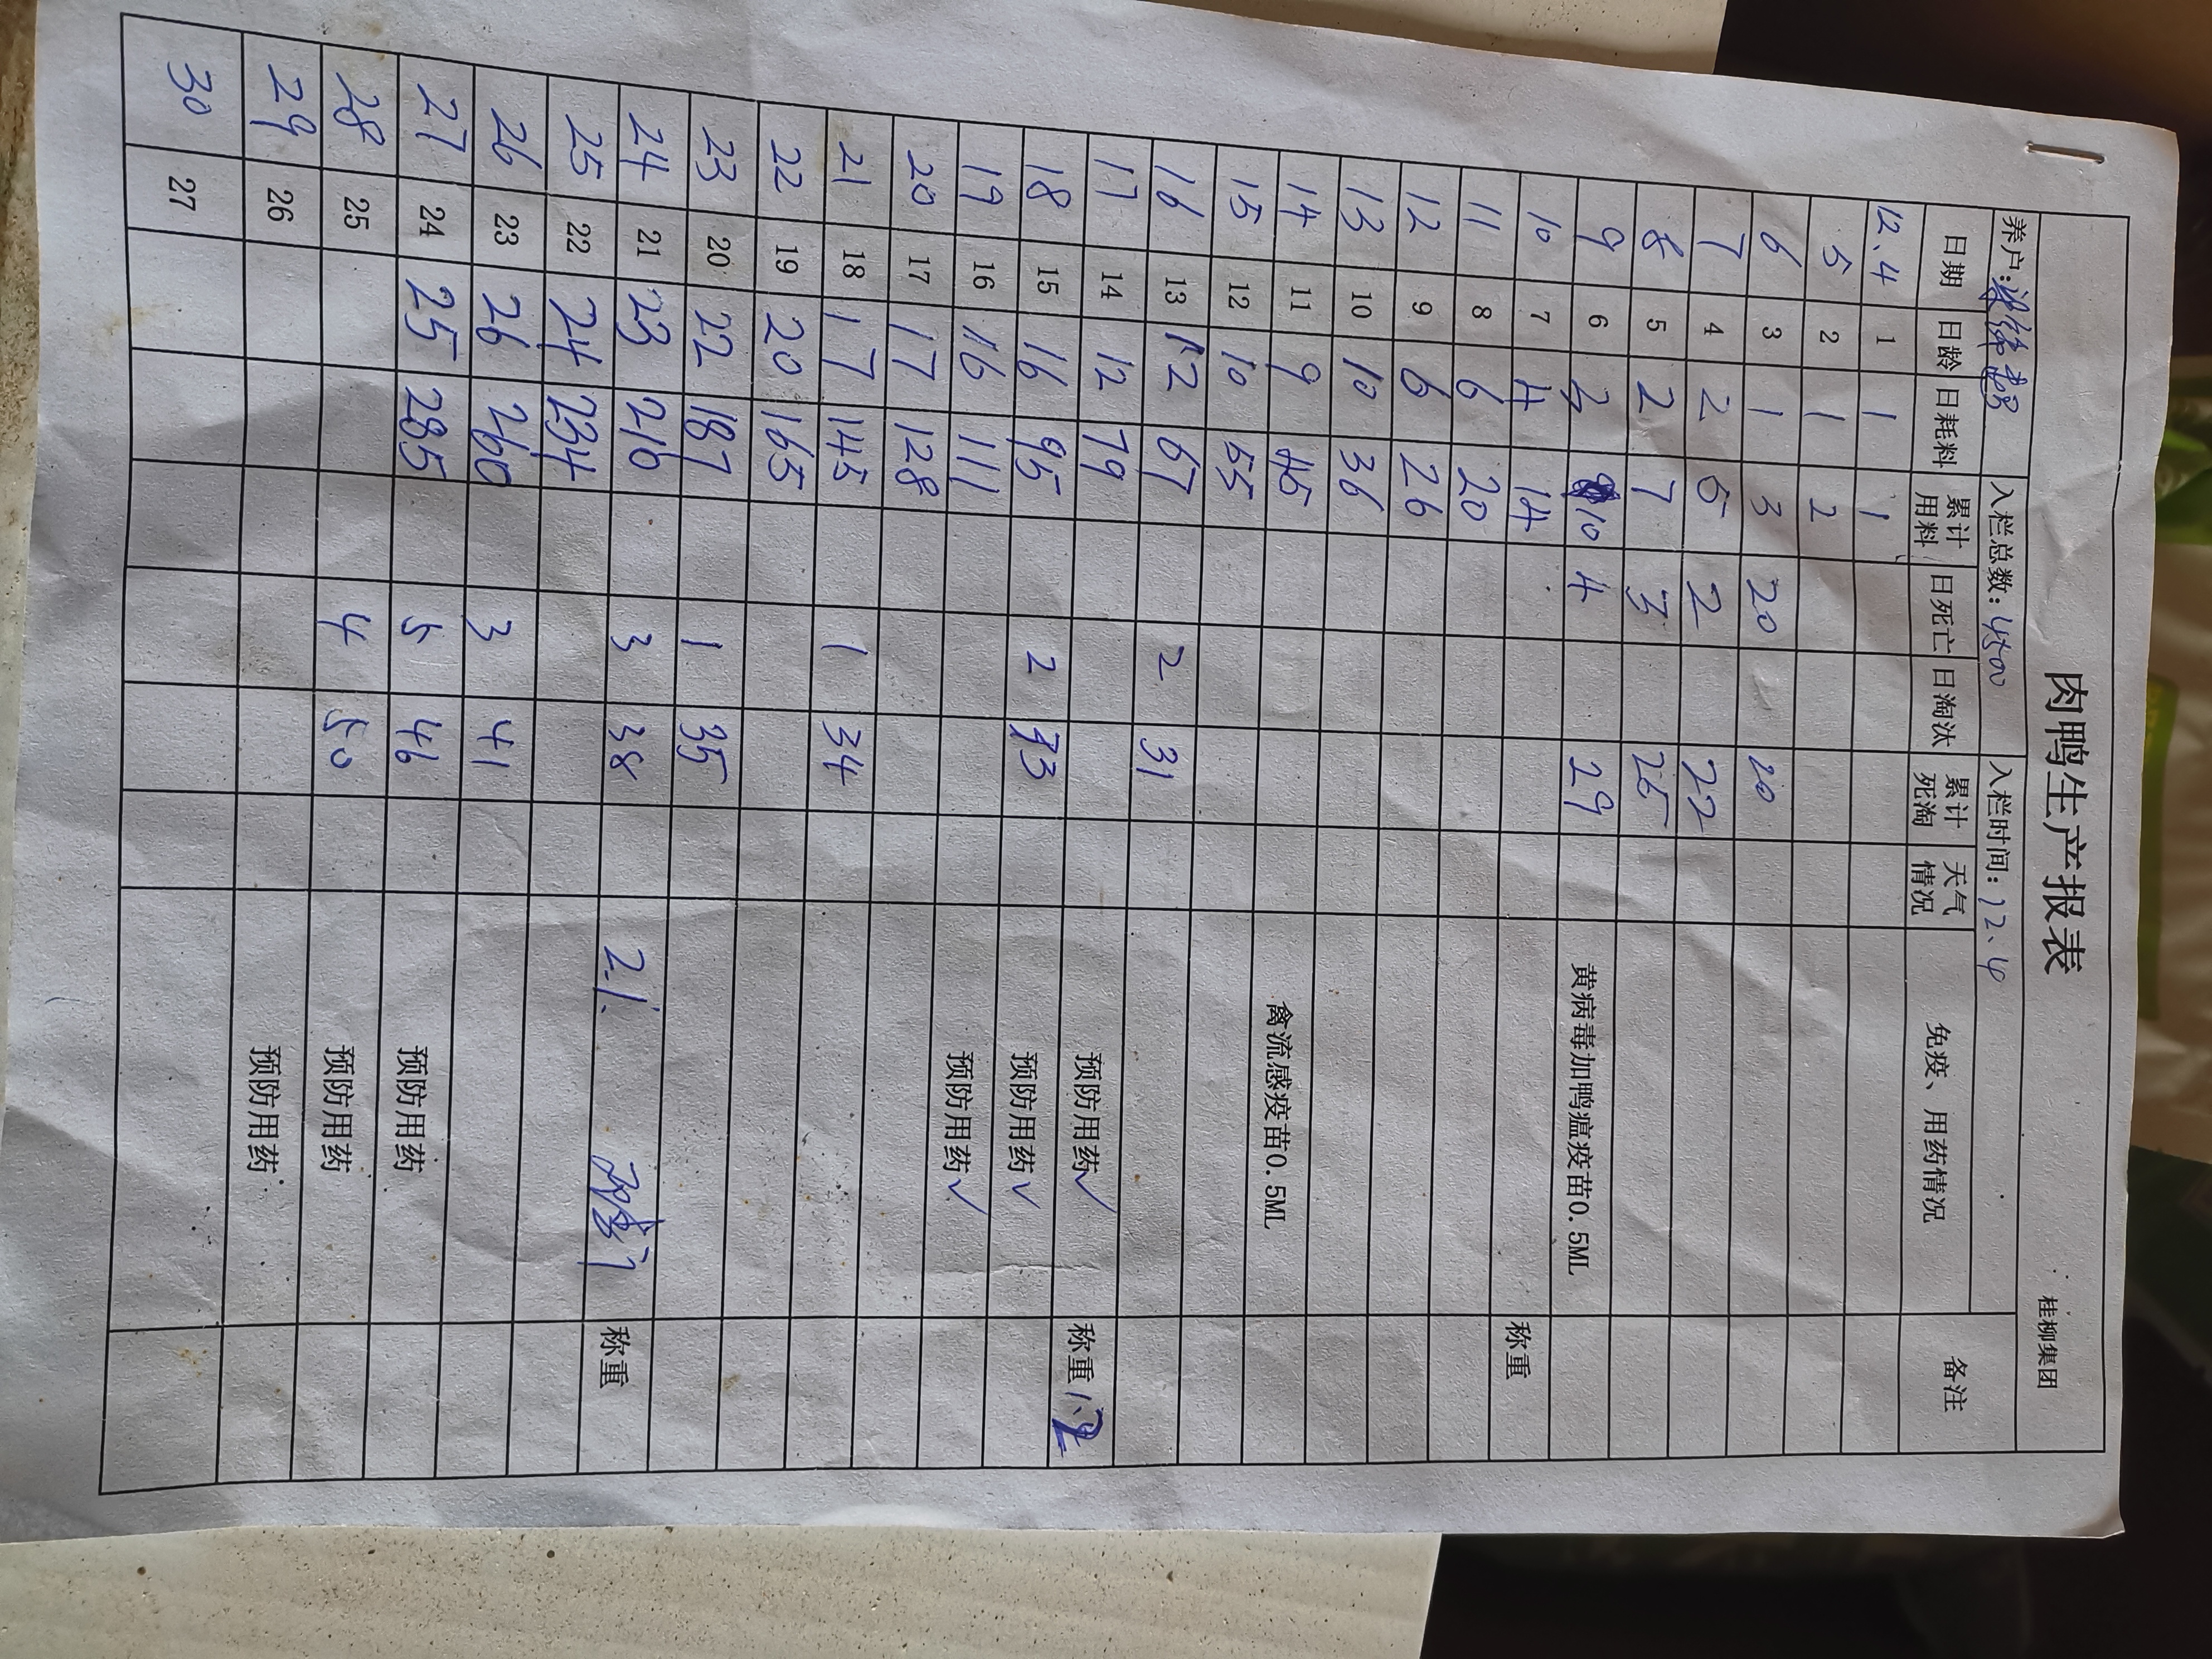 肉鸭生产报表
桂柳集团
养户: 入栏总数: 4500 入栏时间: 12、4
日期 日龄 日耗料 累计用料 日死亡 日淘汰 累计死淘 天气情况 免疫、用药情况 备注
12.4 1 1 1
5 2 1 2
6 3 1 3 20 20
7 4 2 5 2 22
8 5 2 7 3 25
9 6 10 4 29 黄病毒加鸭瘟疫苗0.5ML
10 7 4 14 称重
11 8 6 20
12 9 6 26
13 10 10 36
14 11 9 45 禽流感疫苗0.5ML
15 12 10 55
16 13 12 67 2 31
17 14 12 79 预防用药✓ 称重 1.2
18 15 16 95 2 33 预防用药✓
19 16 16 111 预防用药✓
20 17 17 128
21 18 17 145 1 34
22 19 20 165
23 20 22 187 1 35
24 21 23 210 3 38 2.1. 称重
25 22 24 234
26 23 26 260 3 41
27 24 25 285 5 46 预防用药
28 25 4 50 预防用药
29 26 预防用药
30 27